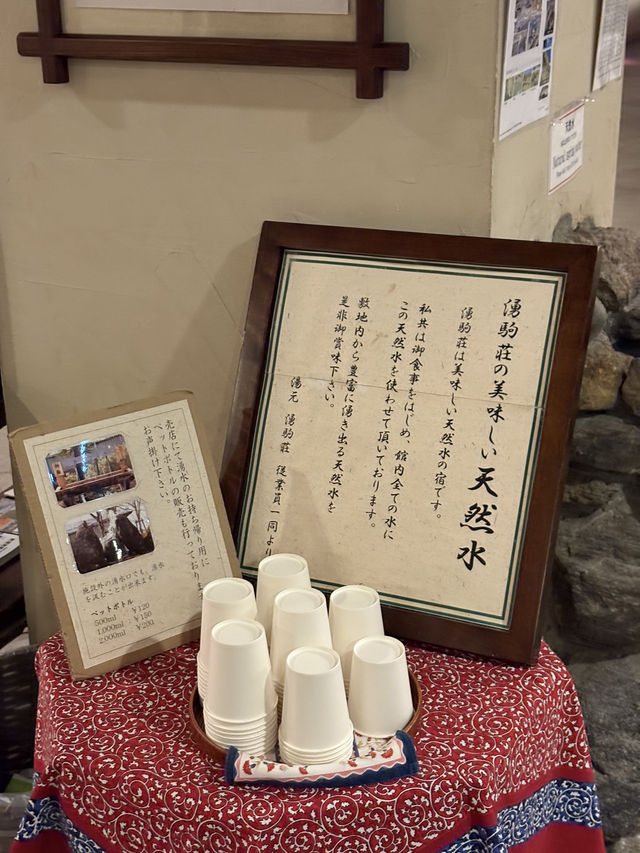 湧駒荘の美味しい天然水
湧駒荘は美味しい天然水の宿です。
私共は御食事をはじめ、館内全ての水に
この天然水を使わせて頂いております。
敷地内から豊富に湧き出る天然水を
是非御賞味下さい。
湯元 湧駒荘 従業員一同より
売店にて湧水のお持ち帰り用に
ペットボトルの販売も行っております
お声掛け下さい。
施設外の湧水口でも、湧水
を汲むことが出来ます。
ペットボトル
500ml :￥120
1,000ml :￥150
2,000ml :￥200